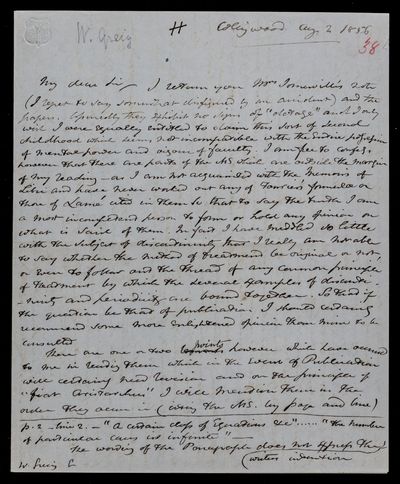 W. Greig
H
Collingwood Aug. 2 1856
38
My dear Sir I return you Mrs Somerville's note
(I regret to say somewhat disfigured by an accident) and the
papers. Assuredly they exhibit no signs of "dotage" and I only
wish I were equally entitled to claim this sort of second
childhood while being not incompatible with the entire possession
of mental power and vigour of faculty. I am free to confess
however that there are parts of the MS which are outside the margin
of my reading as I am not acquainted with the Memoirs of
Libri and have never worked out any of Fourier's formulae or
those of Lamé cited in them so that to say the truth I am
a most incompetent person to form or hold any opinion on
what is said of them. In fact I have meddled so little
with the subject of discontinuity that I really am not able
to say whether the method of treatment be original or not,
or even to follow out the thread of any common principle
of treatment by which the several examples of disconti-
-nuity and periodicity are bound together. So that if
the question be that of publication I should certainly
recommend some more enlightened opinion than mine to be
consulted
There are one or two points however which have occurred
to me in reading them which in the event of Publication
will certainly need revision and on the principle of
"fiat Aristarchus" I will mention them in the
order they occur in (citing the MS. by page and line)
p. 2 - line 2. - "A certain class of Equations &c" ..... "the number
of particular cases is infinite" —
The wording of this Paragraph does not express the
(writer's intention
W. Greig